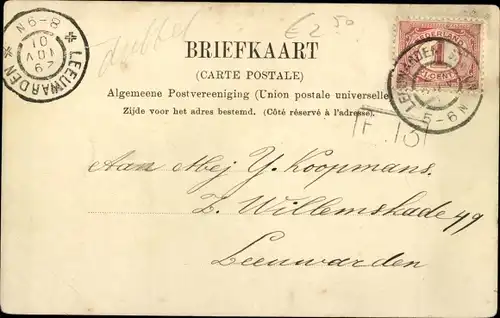 € 2 50
Dubbel
BRIEFKAART
(CARTE POSTALE)
Algemeene Postvereeniging (Union postale universelle)
Zijde voor het adres bestemd. (Côté réservé à l'adresse).
LEEUWARDEN
8-9N
29 NOV
01
NEDERLAND
1
CENT
LEEUWARDEN
5-6N
Aan Mej Y. Koopmans.
Z. Willemskade 49
Leeuwarden